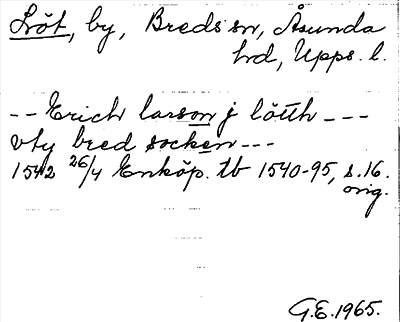 Löt, by, Breds sn, Åsunda
hd, Upps. l.
-- Erich larson j lötth ---
vty bred socken ---
1542 26/4 Enköp. tb 1540-95, s. 16.
orig.
G.E. 1965.